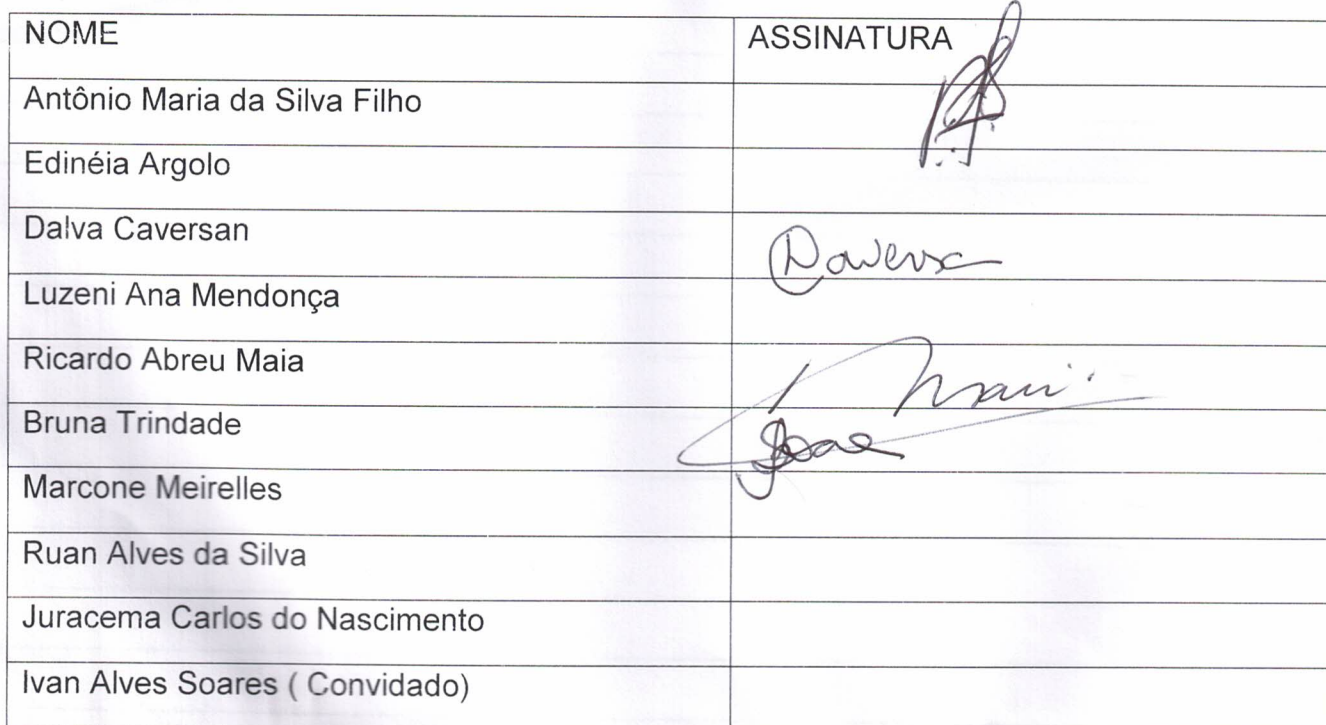 NOME ASSINATURA
Antônio Maria da Silva Filho
Edinéia Argolo
Dalva Caversan
Luzeni Ana Mendonça
Ricardo Abreu Maia
Bruna Trindade
Marcone Meirelles
Ruan Alves da Silva
Juracema Carlos do Nascimento
Ivan Alves Soares ( Convidado)